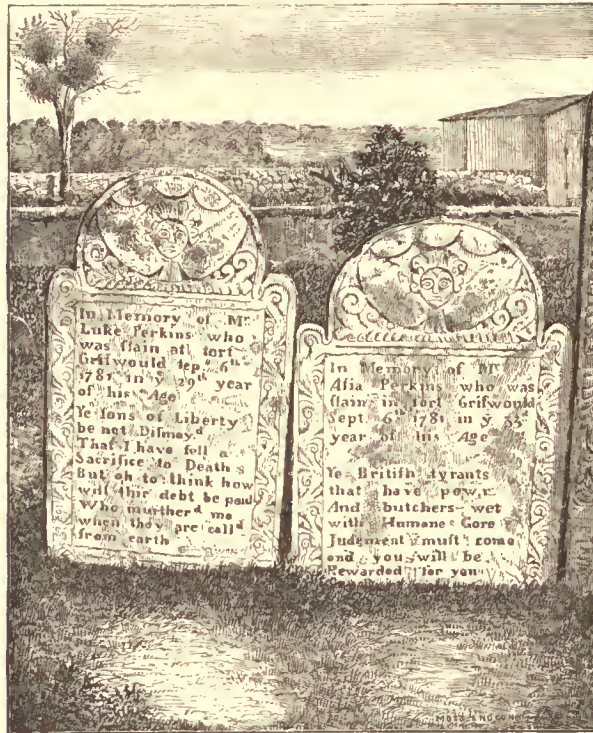 In Memory of Mr
Luke Perkins who
was ſlain at fort
Griſwould Sep. 6th
1781 in ẏ 29th year
of his Age
Ye ſons of Liberty
be not Diſmayd
That I have fell a
Sacrifice to Death
But oh to think how
will thir debt be paid
Who murtherd me
when they are calld
from earth
In Memory of Mr
Aſia Perkins who was
ſlain in fort Griſwould
Sept 6th 1781 in ẏ 33d
year of his Age
Ye Britiſh tyrants
that have powr
And butchers wet
with Humane Gore
Judgment muſt come
and you will be
Rewarded for you